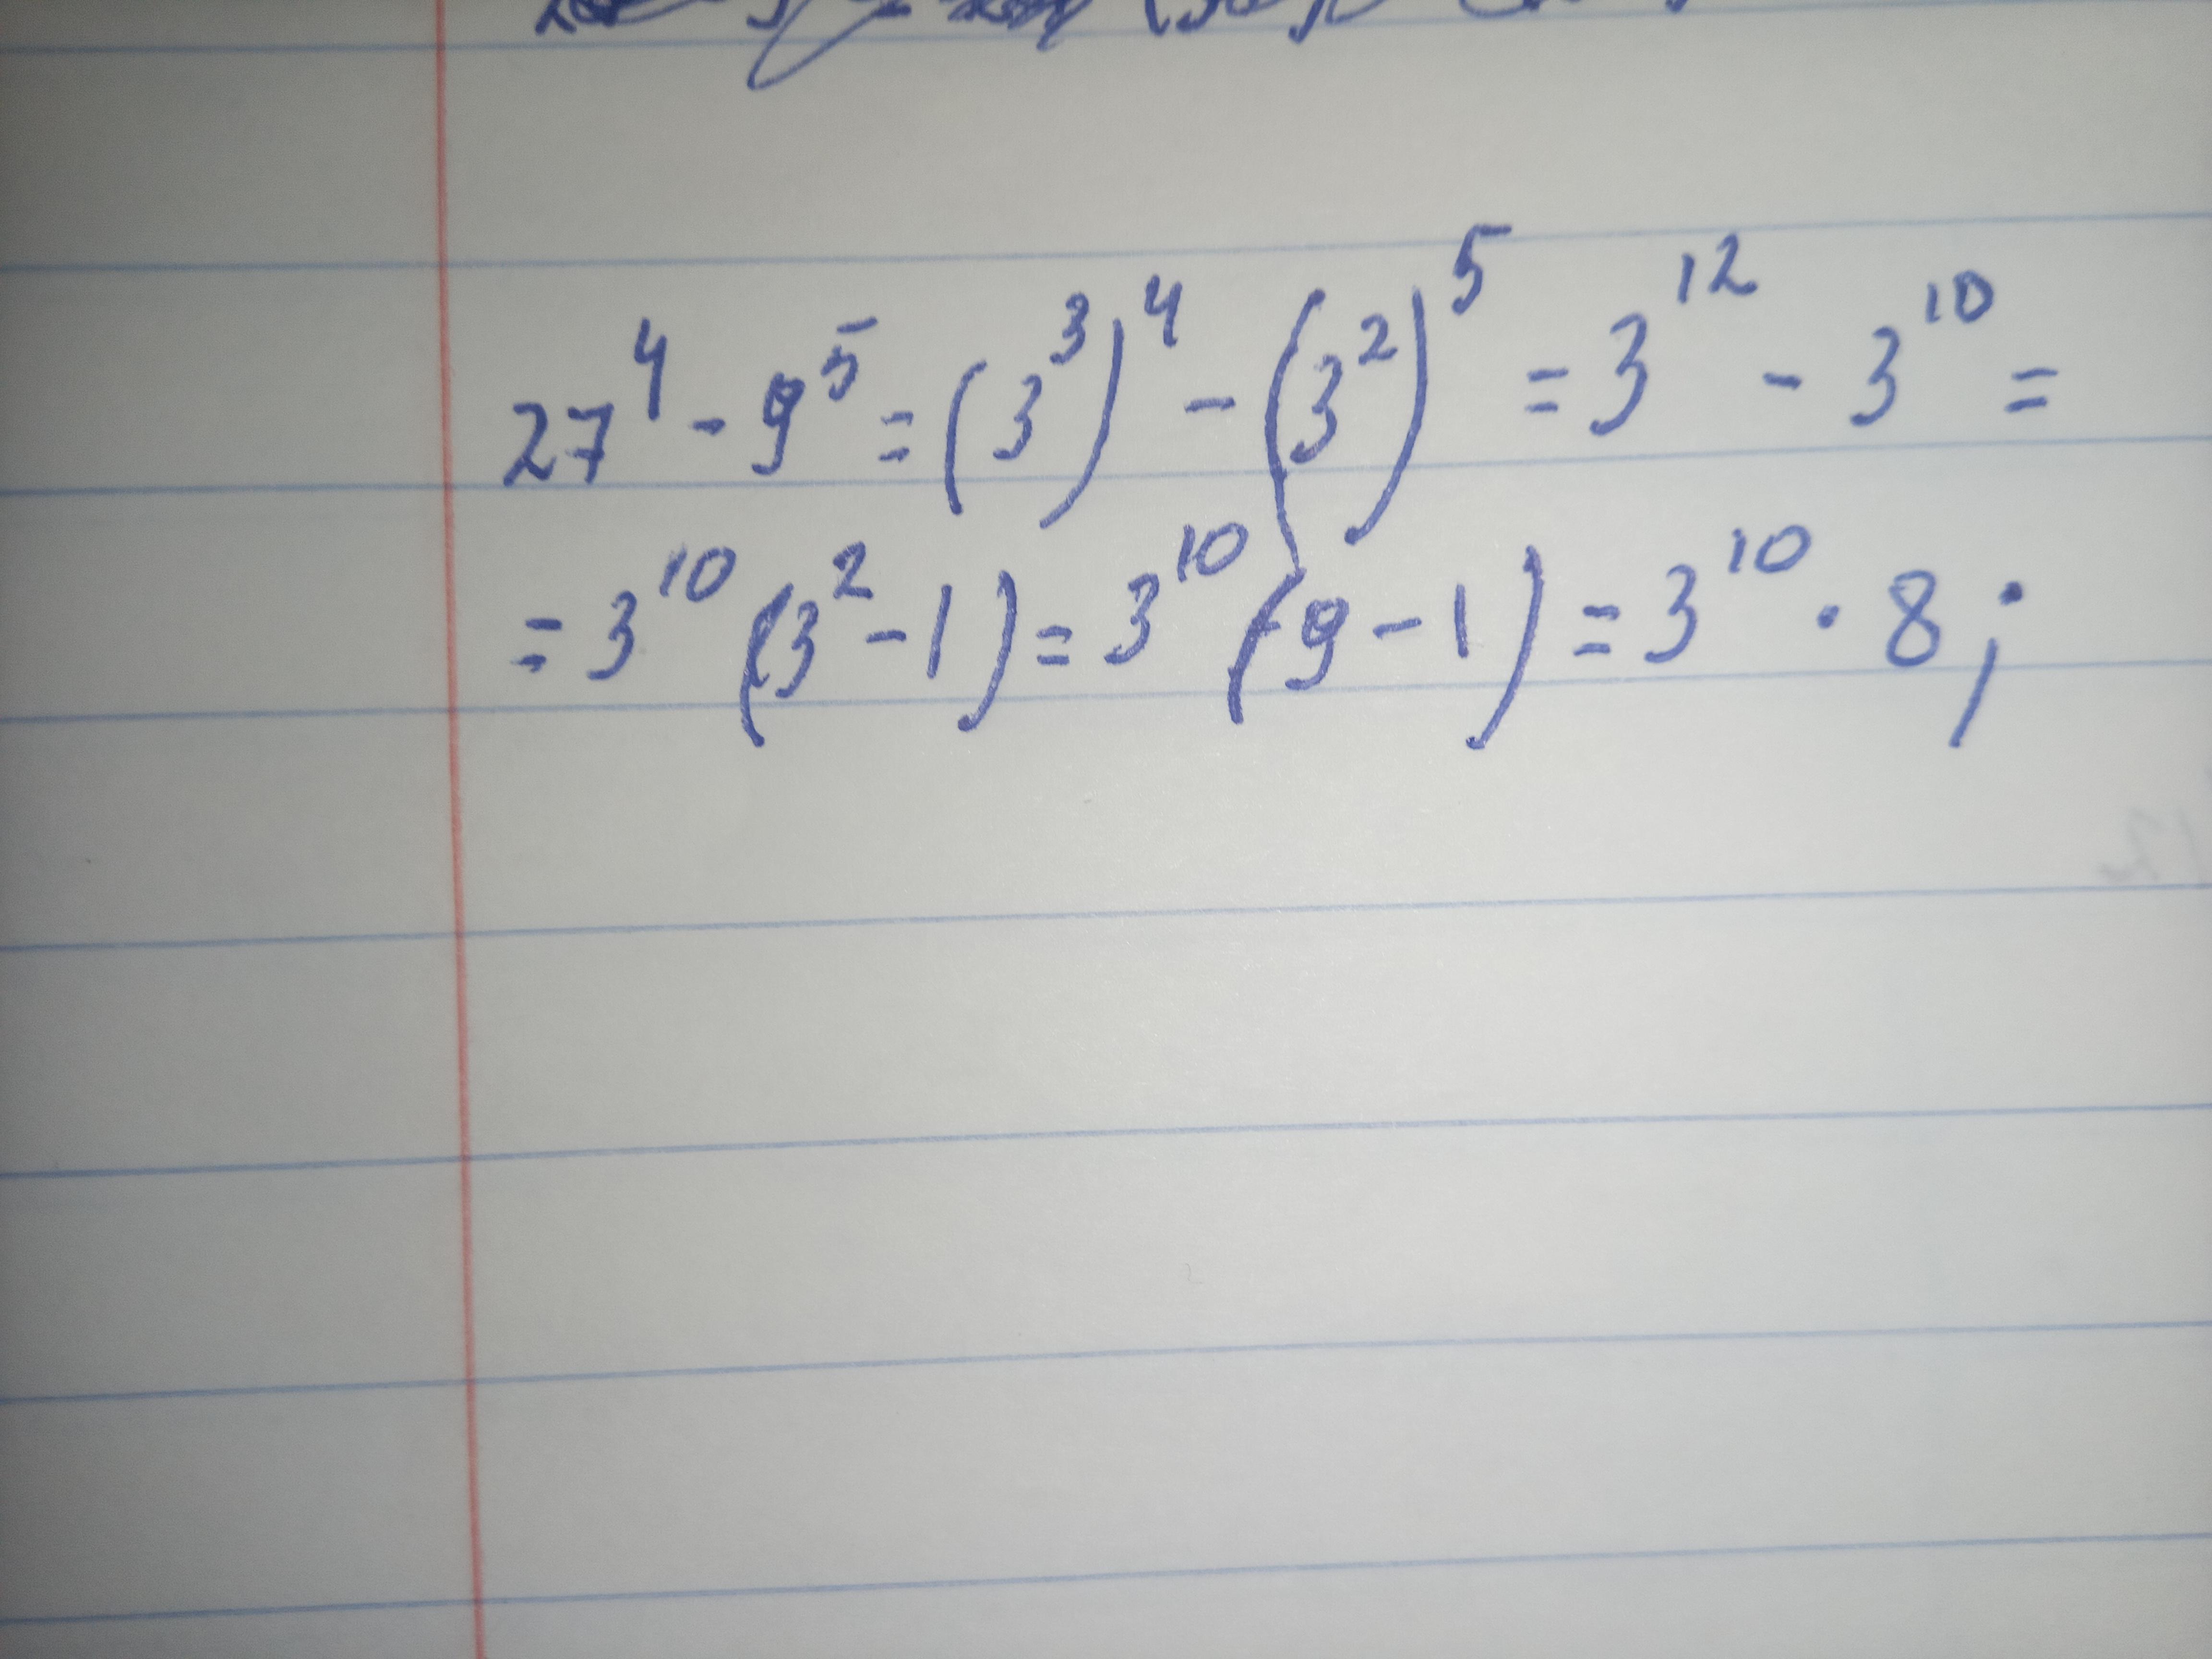 27⁴ - 9⁵ = (3³)⁴ - (3²)⁵ = 3¹² - 3¹⁰ =
= 3¹⁰ (3² - 1) = 3¹⁰ (9 - 1) = 3¹⁰ · 8;